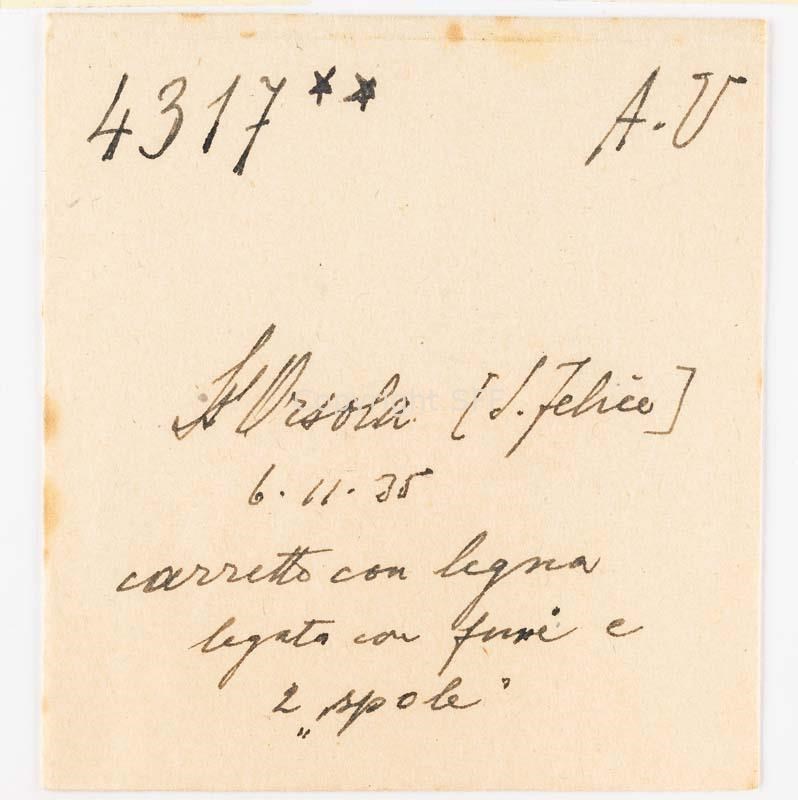 4317** A.V
St Orsola [S. Felice]
6.11.35
carretto con legna
legata con funi e
2 „spole"